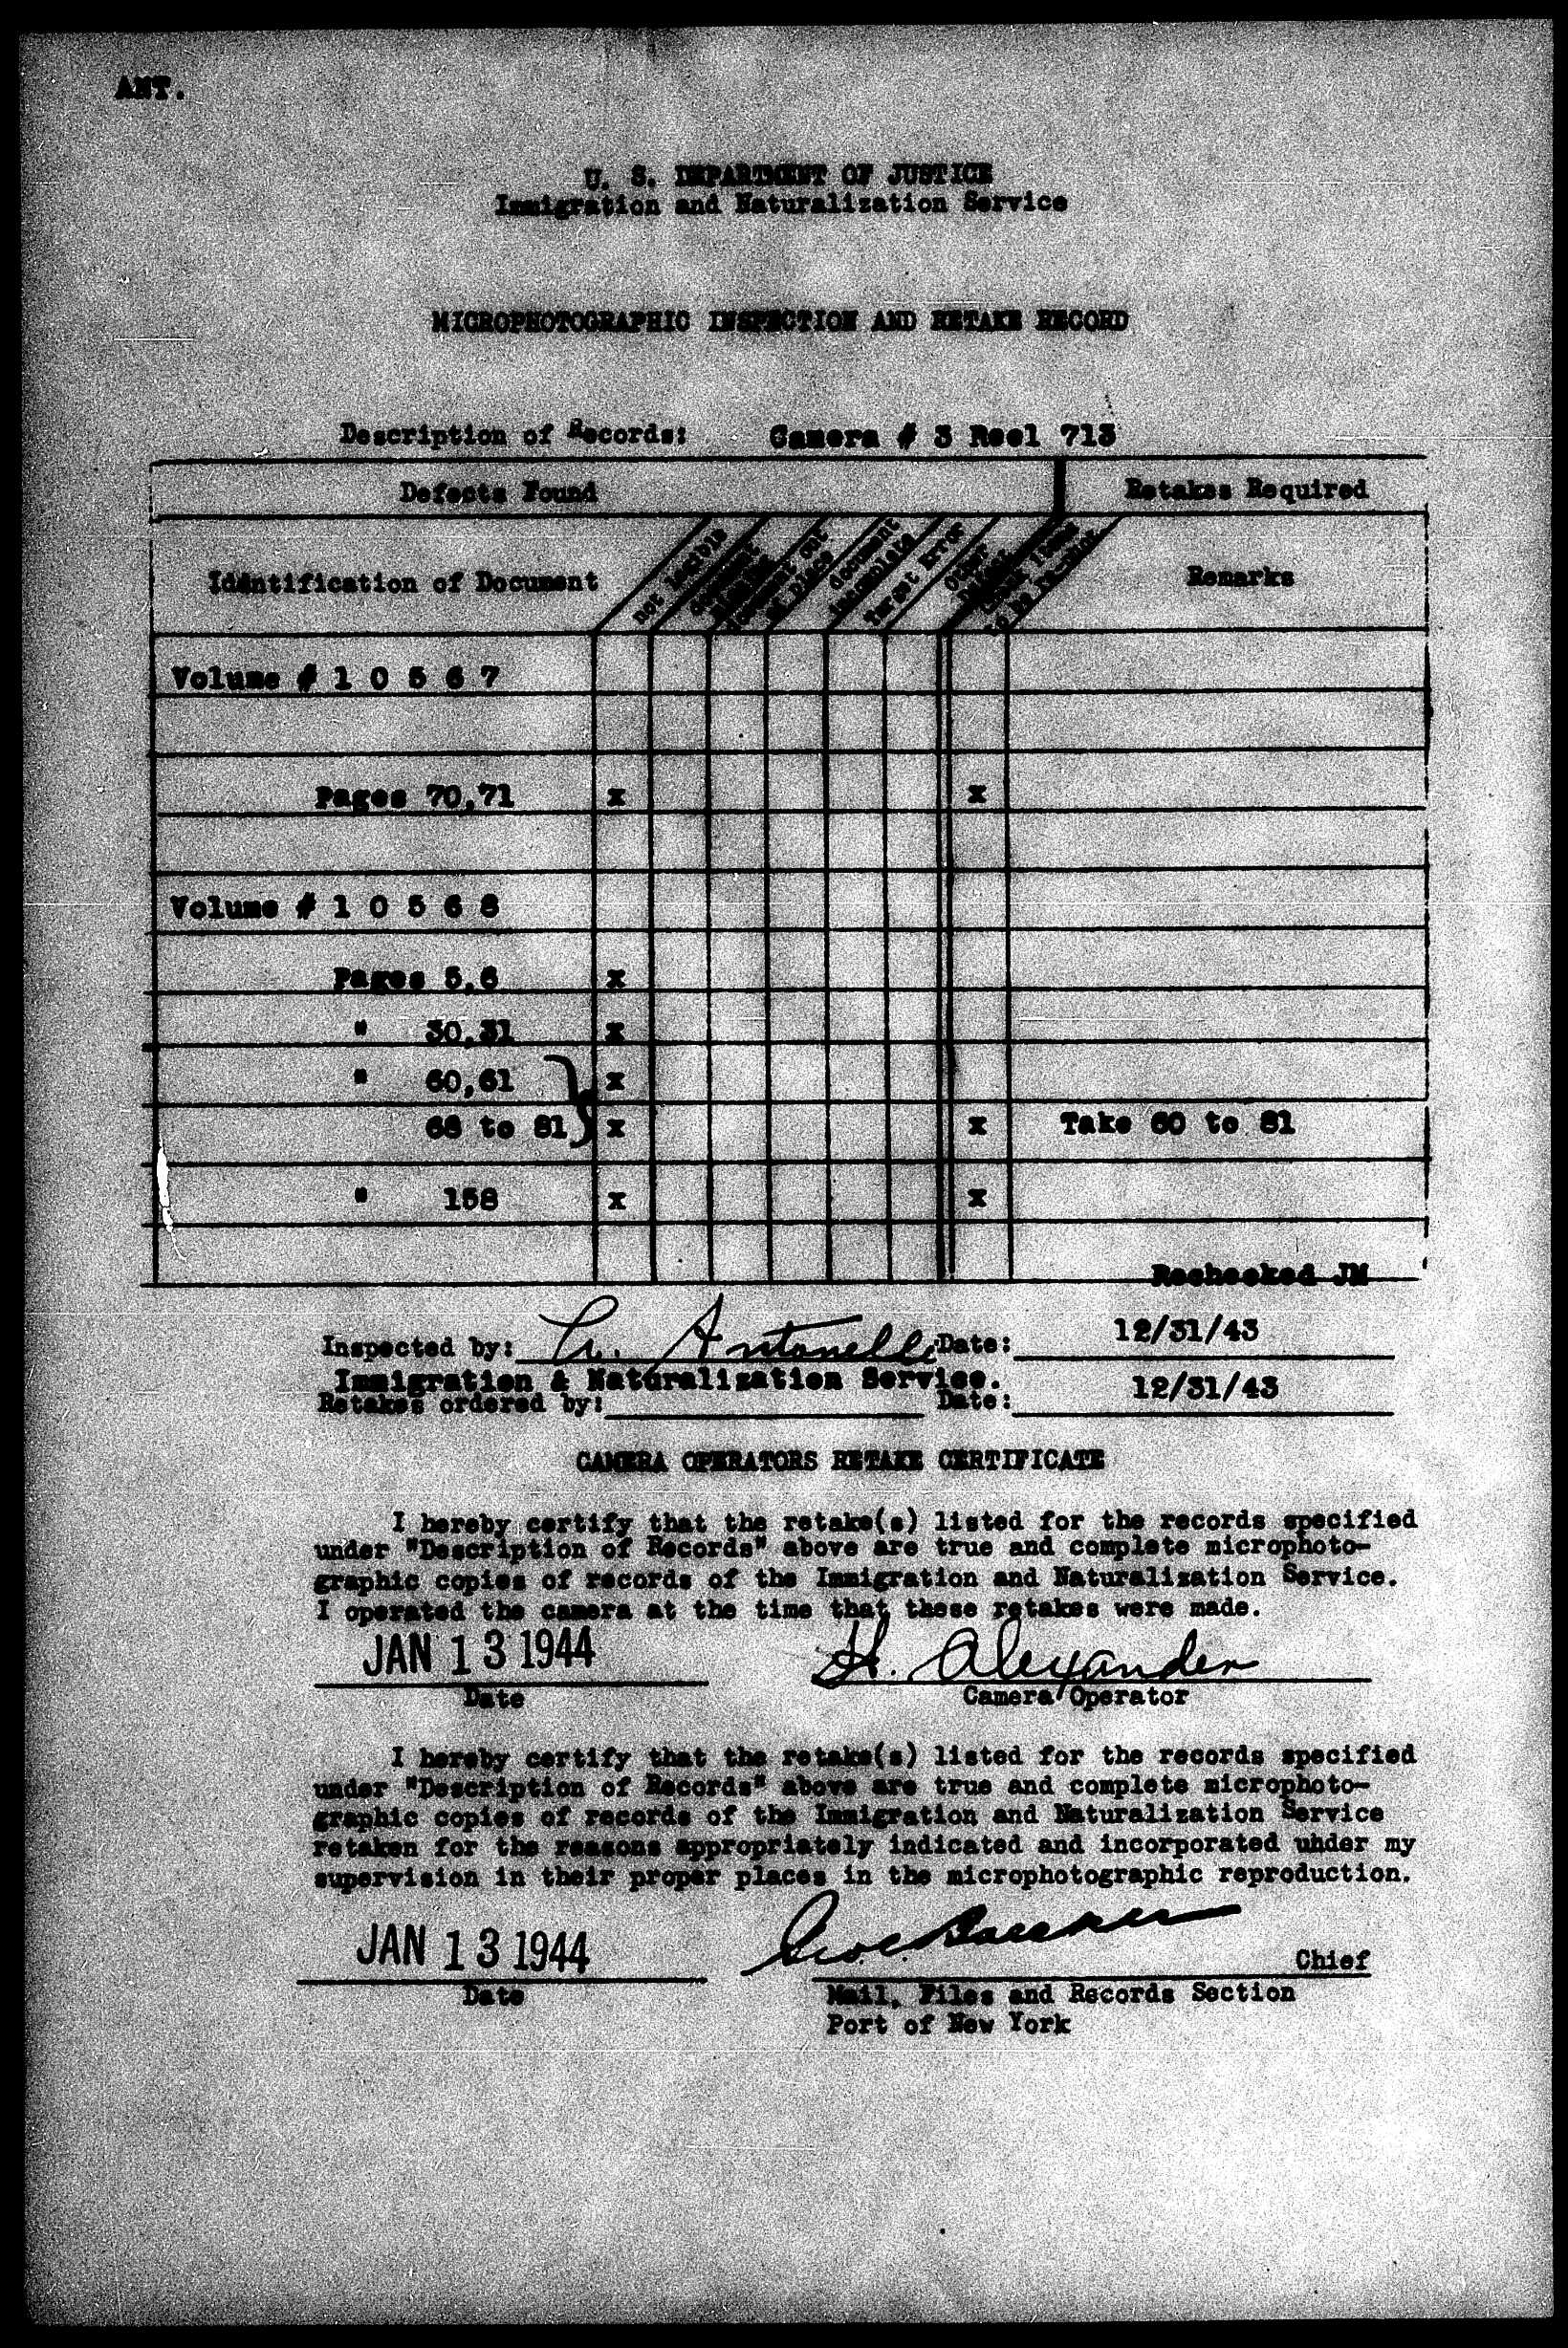 ANT.
U. S. DEPARTMENT OF JUSTICE
Immigration and Naturalization Service
MICROPHOTOGRAPHIC INSPECTION AND RETAKE RECORD
Description of Records: Camera # 3 Reel 713
Defects Found Retakes Required
Identification of Document
not legible
document
document out
of place
document
incomplete
Target Error
Other
Remarks
Volume # 1 0 5 6 7
Pages 70,71 x x
Volume # 1 0 5 6 8
Pages 5,6 x
" 30,31 x
" 60,61 x
68 to 81 x x Take 60 to 81
" 158 x x
Rechecked JM
Inspected by: A. Antonelli Date: 12/31/43
Immigration & Naturalization Service.
Retakes ordered by: Date: 12/31/43
CAMERA OPERATORS RETAKE CERTIFICATE
I hereby certify that the retake(s) listed for the records specified
under "Description of Records" above are true and complete microphoto-
graphic copies of records of the Immigration and Naturalization Service.
I operated the camera at the time that these retakes were made.
JAN 13 1944 H. Alexander
Date Camera Operator
I hereby certify that the retake(s) listed for the records specified
under "Description of Records" above are true and complete microphoto-
graphic copies of records of the Immigration and Naturalization Service
retaken for the reasons appropriately indicated and incorporated under my
supervision in their proper places in the microphotographic reproduction.
JAN 13 1944 Chief
Date Mail, Files and Records Section
Port of New York